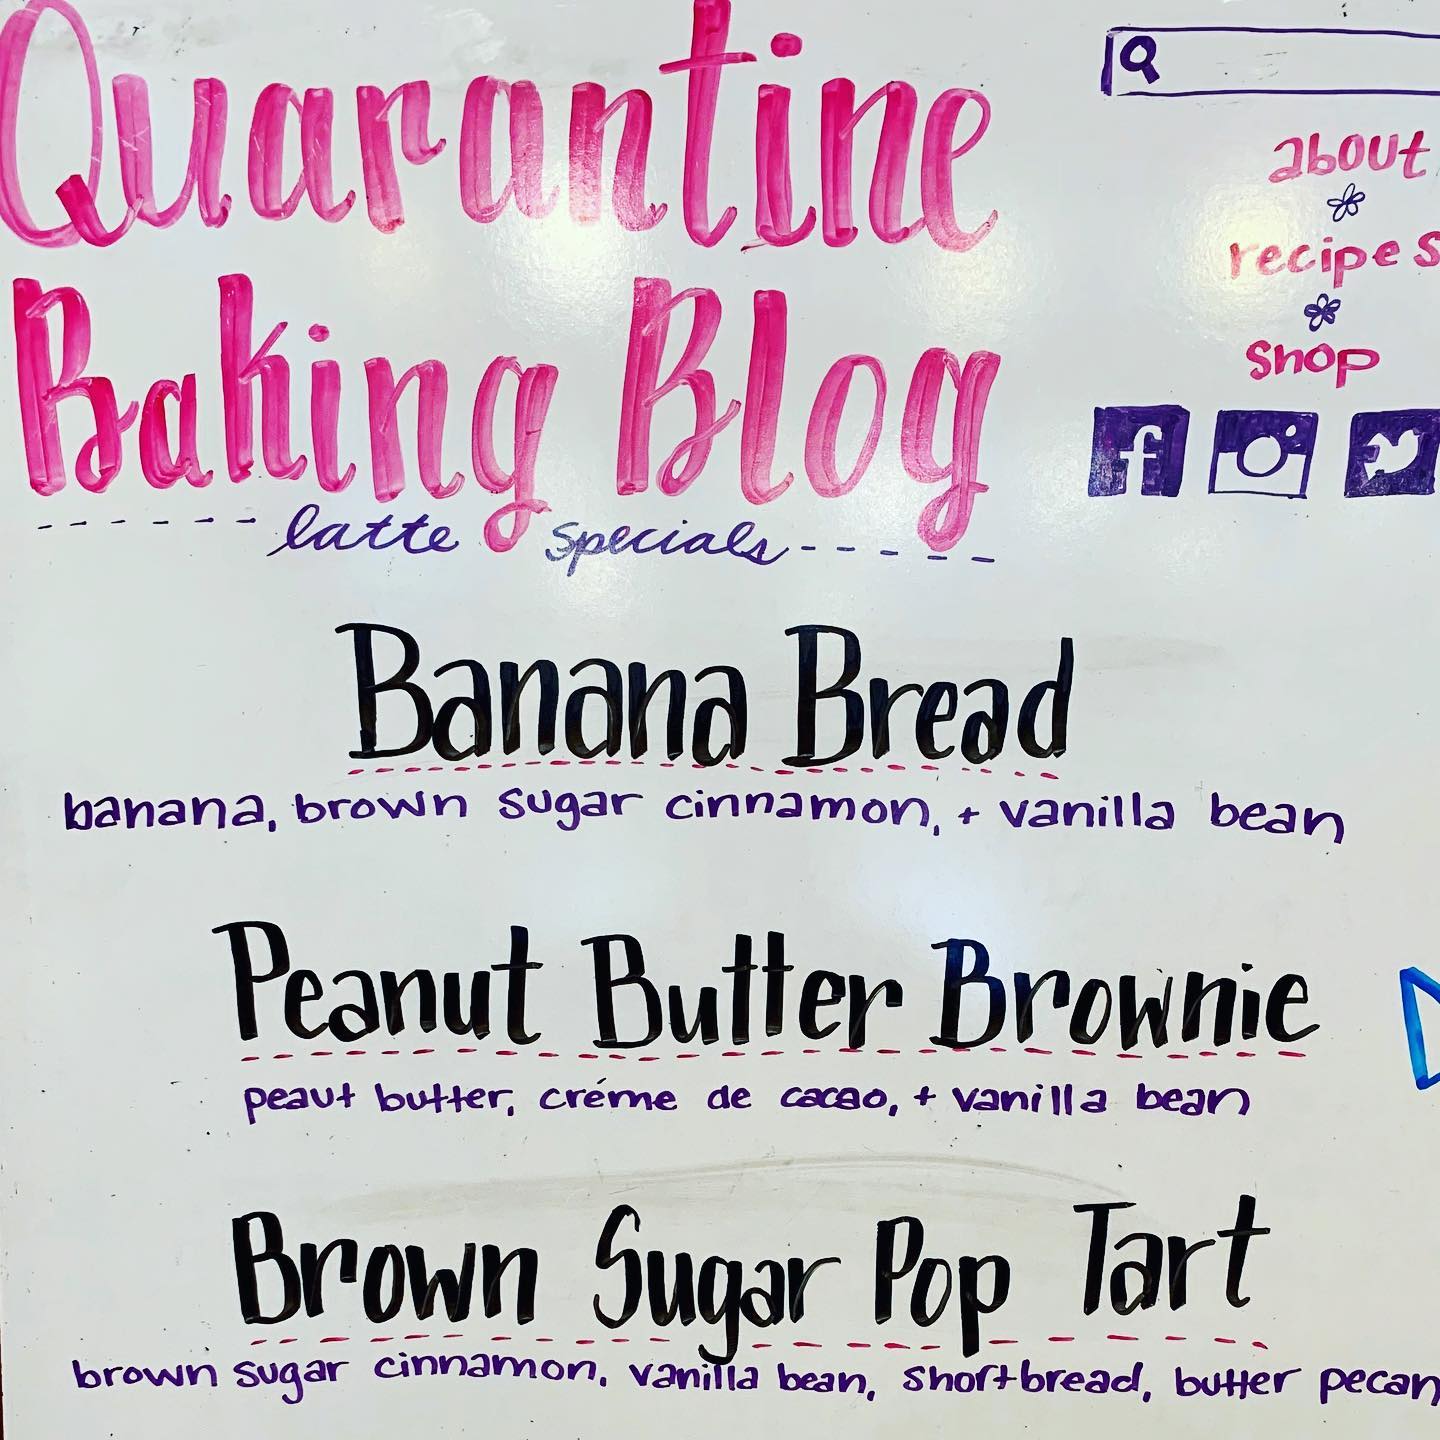 Quarantine
Baking Blog
latte specials
about
recipes
shop
f
Banana Bread
banana, brown sugar cinnamon, + vanilla bean
Peanut Butter Brownie
peaut butter, créme de cacao, + vanilla bean
Brown Sugar Pop Tart
brown sugar cinnamon, vanilla bean, shortbread, butter pecan